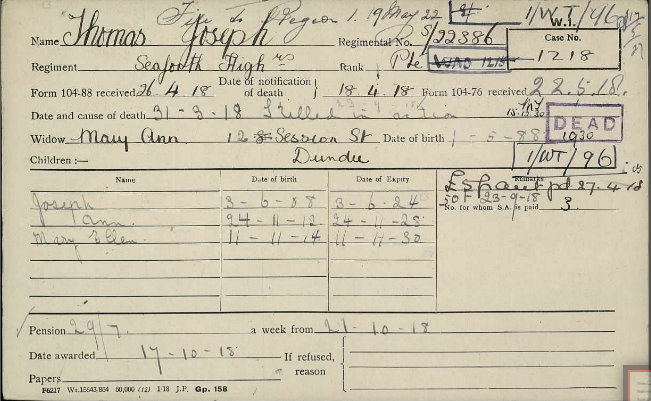 File to Region 1. 19 May 22 1/WT/96
W.I.
Name Thomas Joseph Regimental No. S/22386 Case No.
Regiment Seaforth Highrs Rank Pte 1218
Form 104-88 received 26.4.18 Date of notification of death 18.4.18 Form 104-76 received 22.5.18.
Date and cause of death 31-3-18 Killed in action
DEAD
Widow Mary Ann. 12 Session St Date of birth 1-5-88 1930
Children:— Dundee 1/WT/96
Name Date of birth Date of Expiry Remarks
pd 27.4.18
Joseph 3-6-08 3-6-24 23-9-18
No. for whom S.A. is paid 3.
Ann. 24-11-12 24-11-28
Mary Ellen. 11-11-14 11-11-30
Pension 29/7 a week from 21-10-18
Date awarded 17-10-18 If refused,
reason
Papers
P6217 Wt.15643/854 50,000 (12) 1/18 J.P. Gp. 158